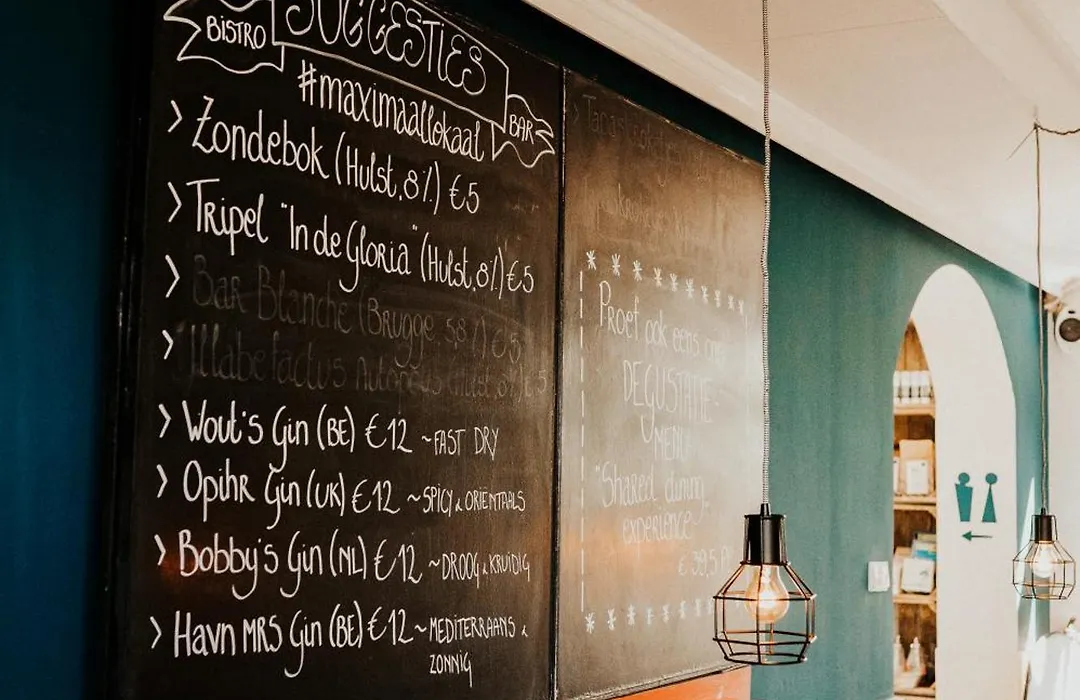 BISTRO
SUGGESTIES
BAR
#maximaallokaal
> Zondebok (Hulst, 8%) €5
> Tripel "In de Gloria" (Hulst, 8%) €5
> Bar Blanche (Brugge, 5,8%) €5
> (Hulst, 8%) €5
> Wout's Gin (BE) €12 ~ FAST DRY
> Opihr Gin (UK) €12 ~ SPICY & ORIËNTAALS
> Bobby's Gin (NL) €12 ~ DROOG & KRUIDIG
> Havn MRS Gin (BE) €12 ~ MEDITERRAANS &
ZONNIG
Proef ook eens ons
DEGUSTATIE-
MENU
"Shared dining
experience"